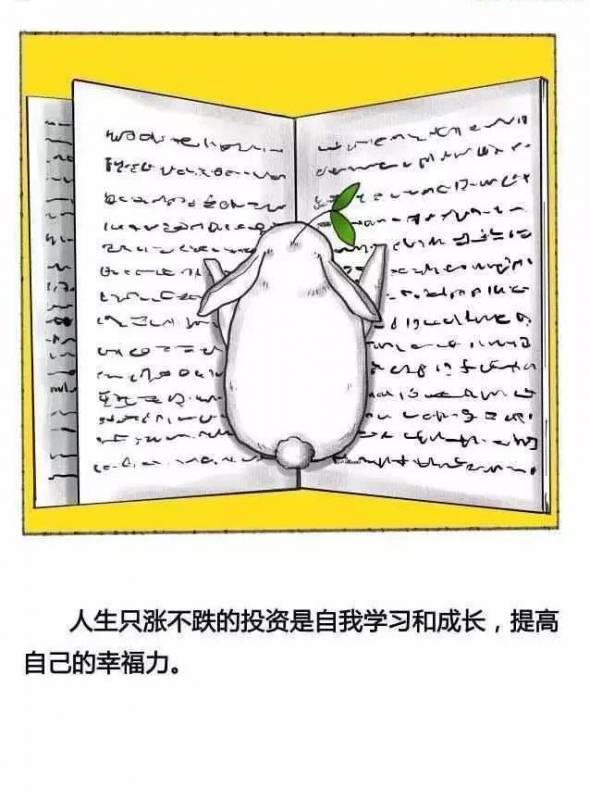 人生只涨不跌的投资是自我学习和成长，提高
自己的幸福力。